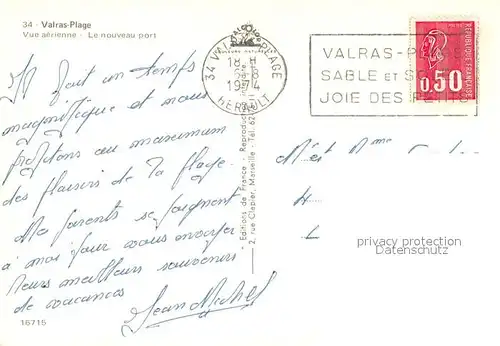 34 - Valras-Plage
Vue aérienne - Le nouveau port
Il fait un temps
magnifique et nous
profitons au maximum
des plaisirs de la plage.
Mes parents se joignent
à moi pour vous envoyer
leurs meilleurs souvenirs
de vacances
Jean Michel
16715
34 VALRAS-PLAGE
18 H
1974
HERAULT
Editions de France - Reproduc
2, rue Clapier, Marseille - Tél. 62
VALRAS-PLAGE
SABLE ET S
JOIE DES
REPUBLIQUE FRANÇAISE
0,50
M et Mme
privacy protection
Datenschutz